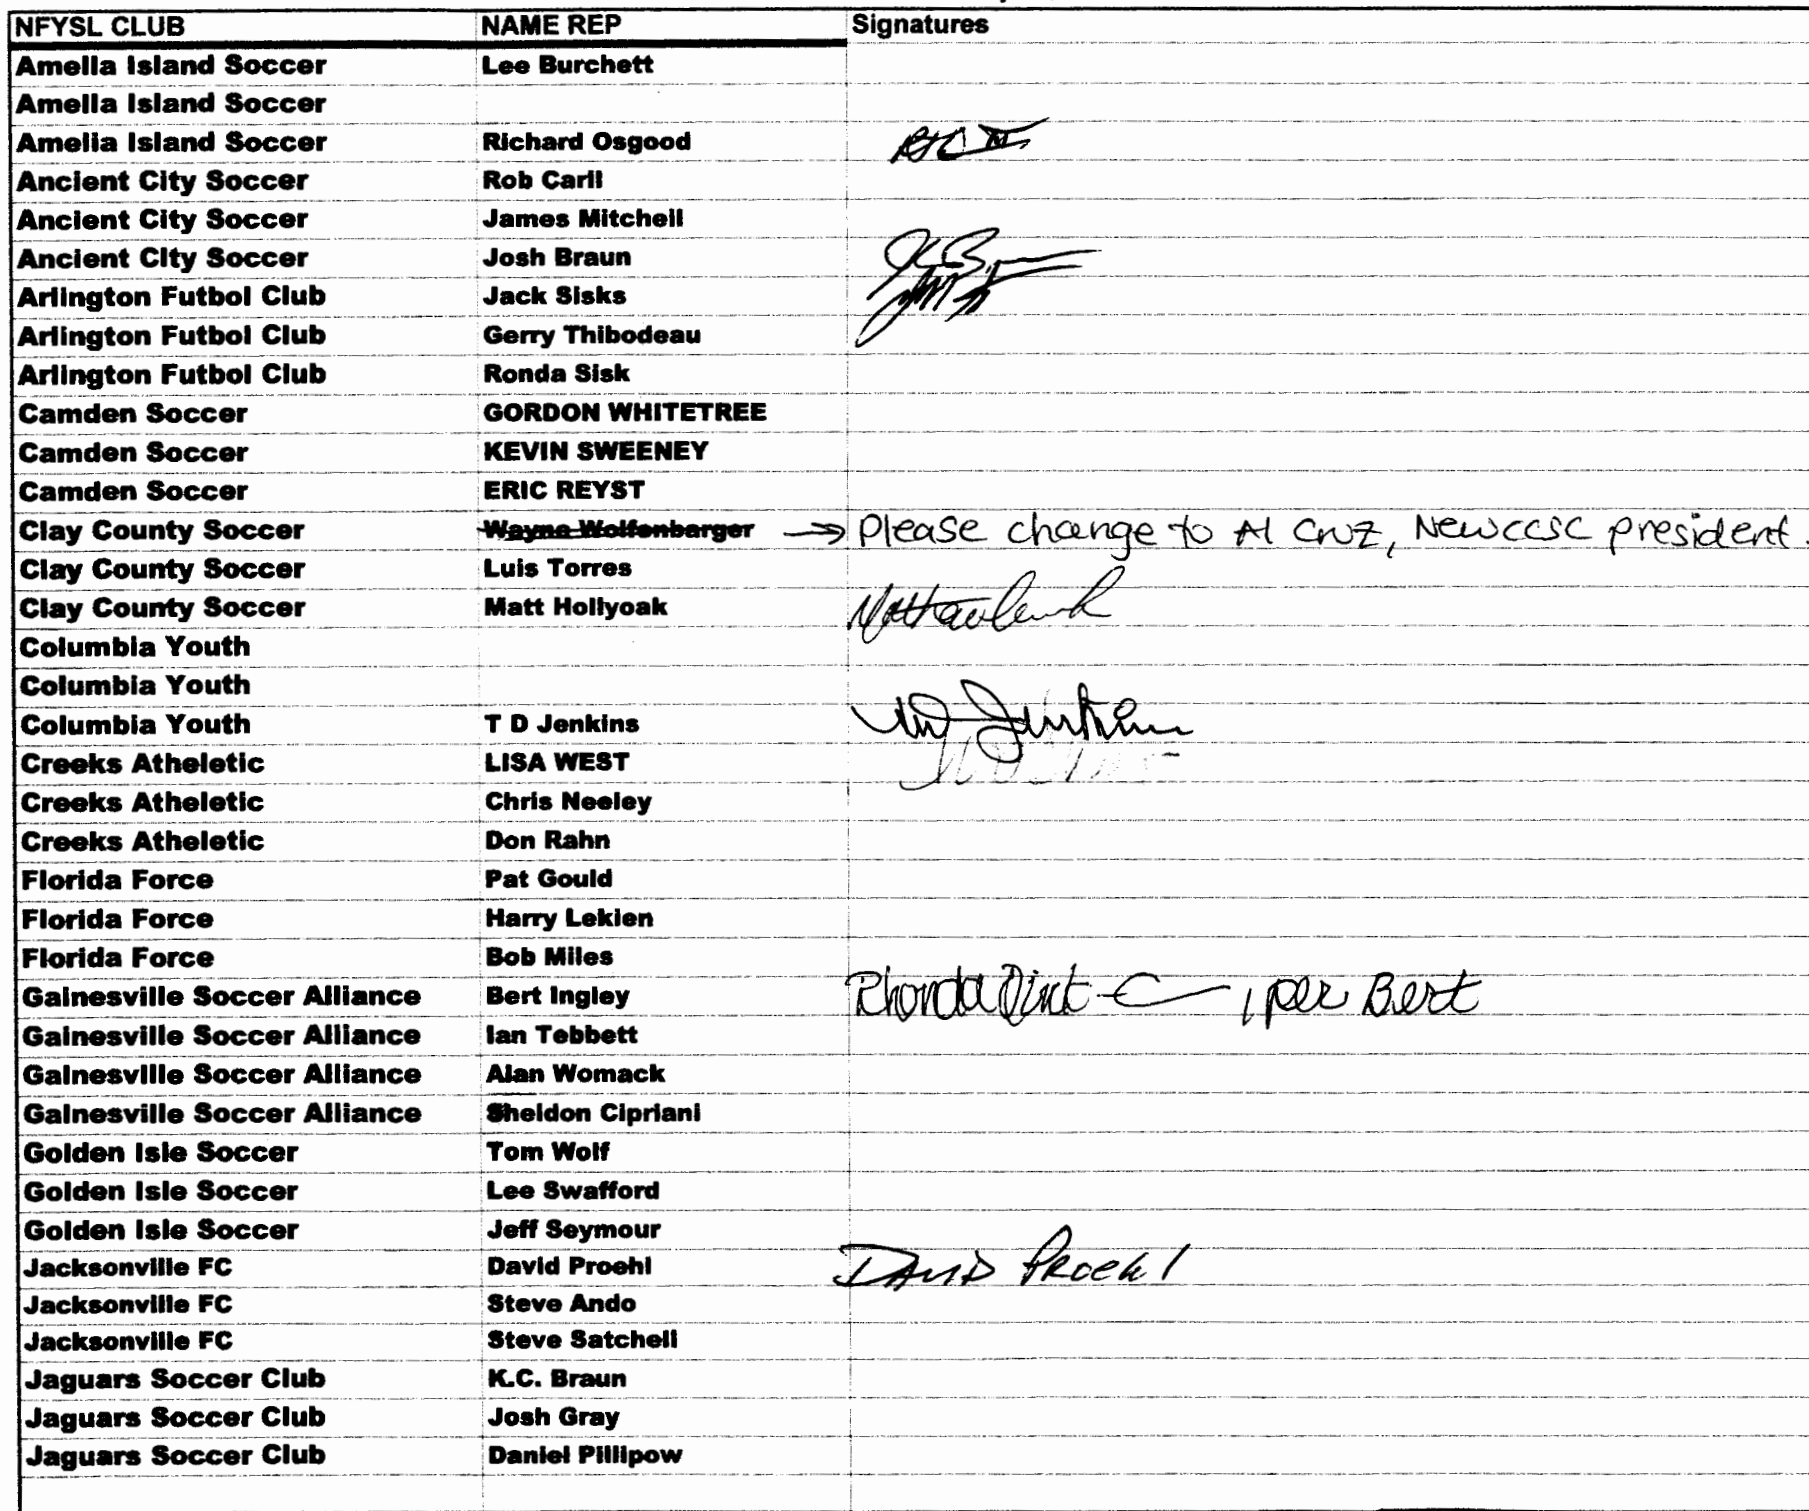 NFYSL CLUB NAME REP Signatures
Amelia Island Soccer Lee Burchett
Amelia Island Soccer
Amelia Island Soccer Richard Osgood
Ancient City Soccer Rob Carll
Ancient City Soccer James Mitchell
Ancient City Soccer Josh Braun
Arlington Futbol Club Jack Sisks
Arlington Futbol Club Gerry Thibodeau
Arlington Futbol Club Ronda Sisk
Camden Soccer GORDON WHITETREE
Camden Soccer KEVIN SWEENEY
Camden Soccer ERIC REYST
Clay County Soccer Wayne Wolfenbarger → Please change to Al Cruz, New CCSC president.
Clay County Soccer Luis Torres
Clay County Soccer Matt Hollyoak
Columbia Youth
Columbia Youth
Columbia Youth T D Jenkins
Creeks Atheletic LISA WEST
Creeks Atheletic Chris Neeley
Creeks Atheletic Don Rahn
Florida Force Pat Gould
Florida Force Harry Lekien
Florida Force Bob Miles
Gainesville Soccer Alliance Bert Ingley Rhonda , per Bert
Gainesville Soccer Alliance Ian Tebbett
Gainesville Soccer Alliance Alan Womack
Gainesville Soccer Alliance Sheldon Cipriani
Golden Isle Soccer Tom Wolf
Golden Isle Soccer Lee Swafford
Golden Isle Soccer Jeff Seymour
Jacksonville FC David Proehl David Proehl
Jacksonville FC Steve Ando
Jacksonville FC Steve Satchell
Jaguars Soccer Club K.C. Braun
Jaguars Soccer Club Josh Gray
Jaguars Soccer Club Daniel Pillipow